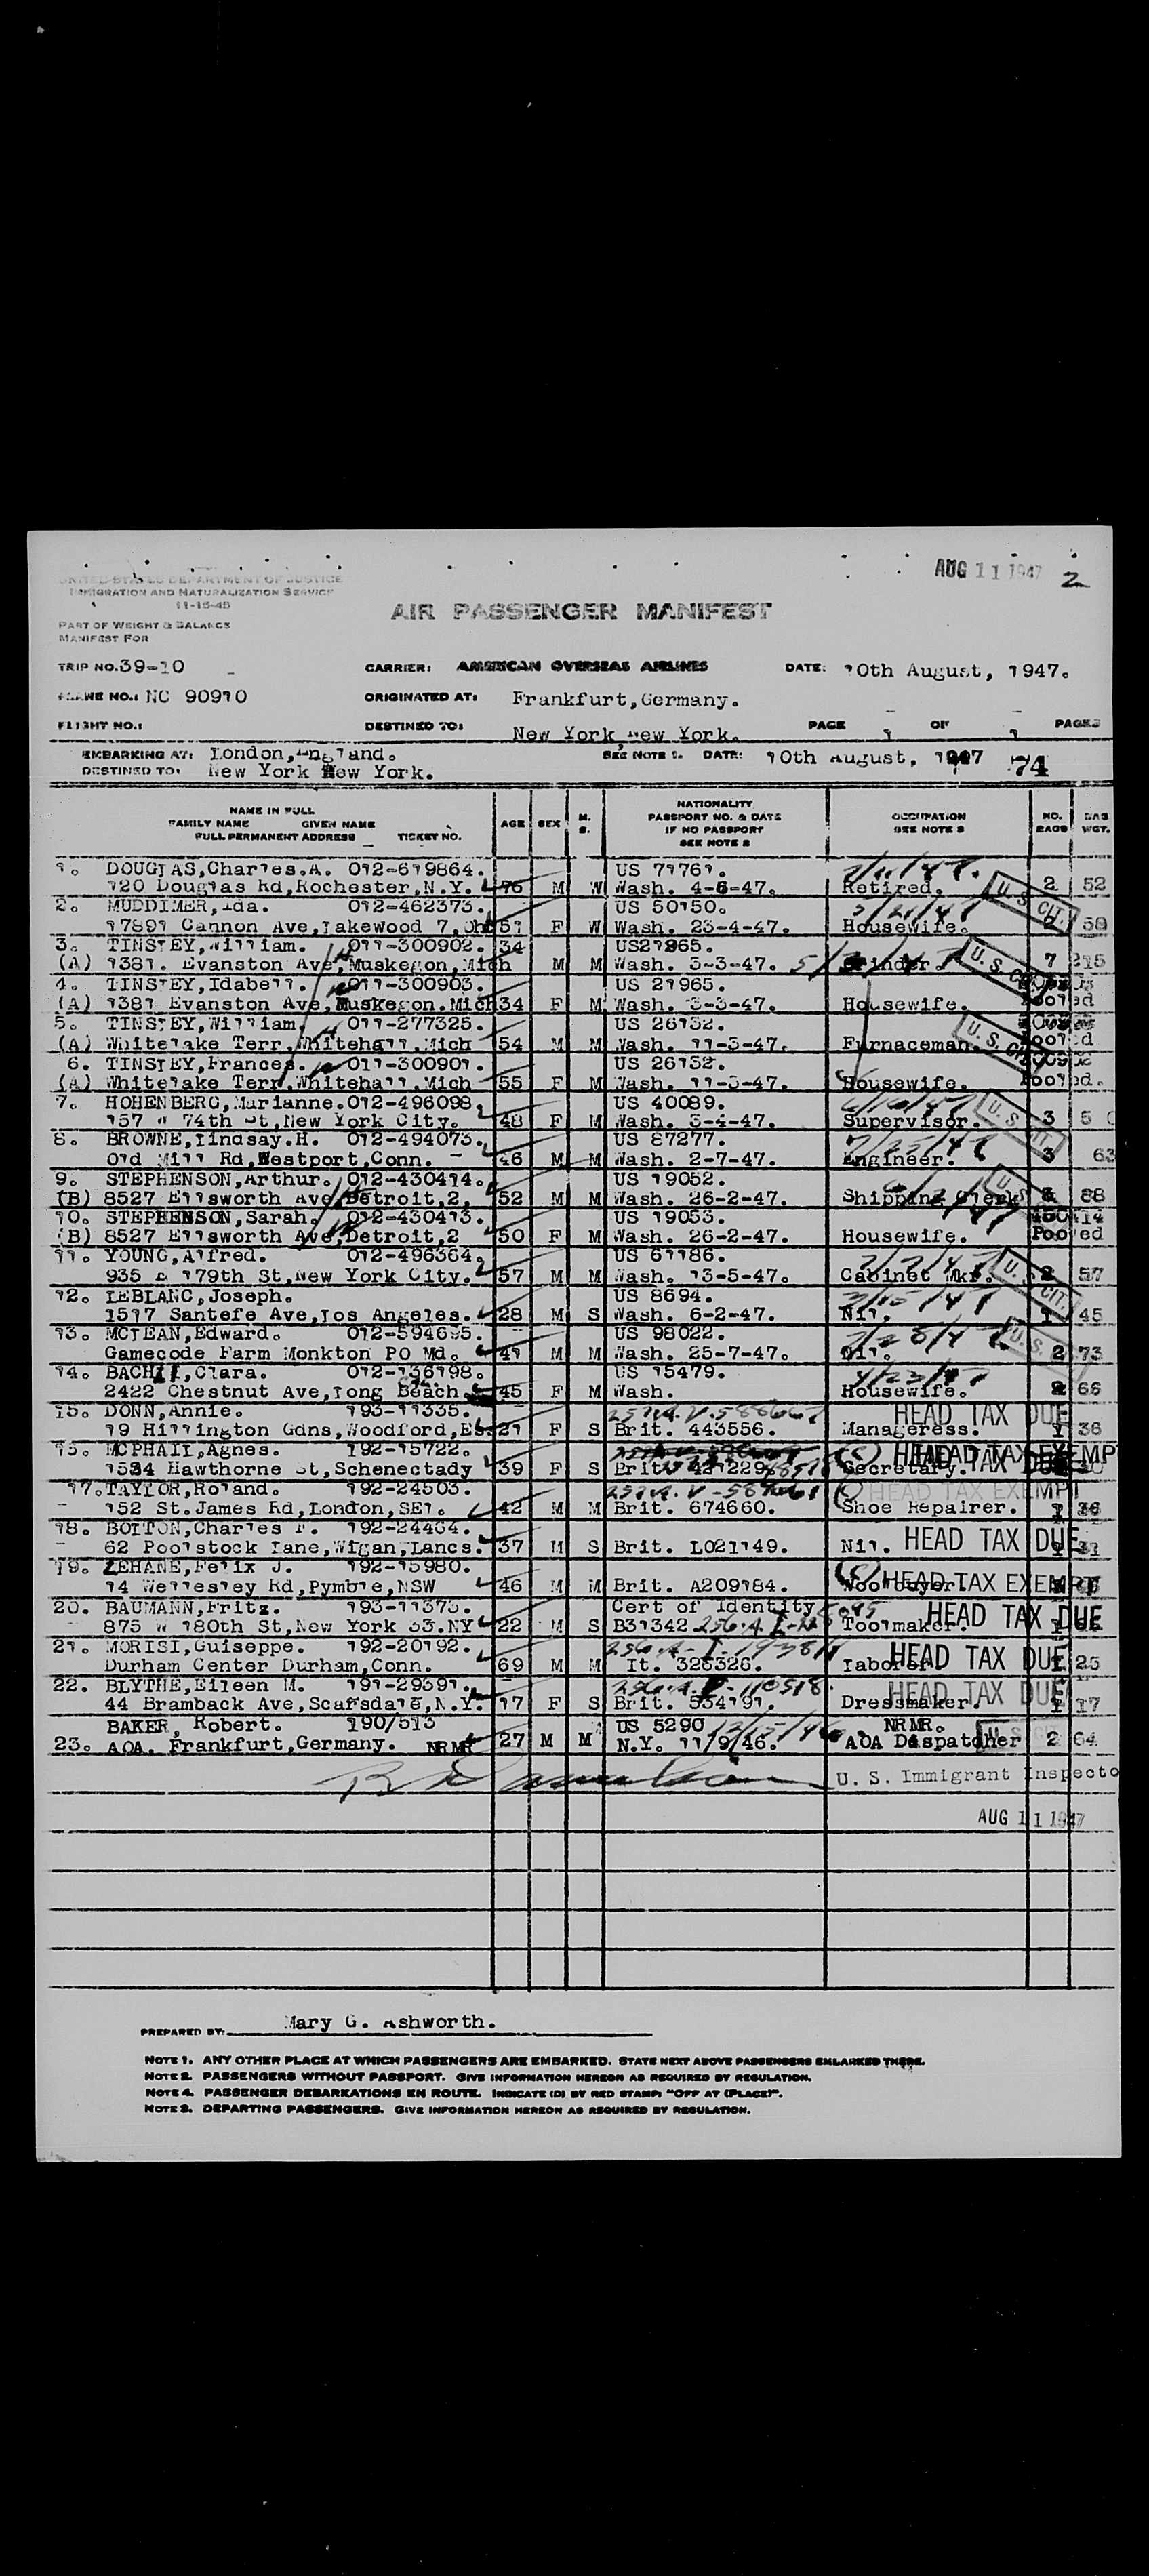 AUG 11 1947 2
UNITED STATES DEPARTMENT OF JUSTICE
IMMIGRATION AND NATURALIZATION SERVICE
11-15-45
AIR PASSENGER MANIFEST
PART OF WEIGHT & BALANCE
MANIFEST FOR
TRIP NO. 39-10 CARRIER: AMERICAN OVERSEAS AIRLINES DATE: 10th August, 1947.
PLANE NO.: NC 90910 ORIGINATED AT: Frankfurt,Germany.
FLIGHT NO.: DESTINED TO: New York New York. PAGE 1 OF 1 PAGES
EMBARKING AT: London,England. SEE NOTE 1. DATE: 10th August, 1947 74
DESTINED TO: New York New York.
NAME IN FULL
FAMILY NAME GIVEN NAME
FULL PERMANENT ADDRESS TICKET NO. AGE SEX M. S. NATIONALITY PASSPORT NO. & DATE IF NO PASSPORT SEE NOTE 2 OCCUPATION SEE NOTE 3 NO. BAGS BAG WGT.
1. DOUGLAS,Charles.A. 012-619864. US 71761.
120 Douglas Rd,Rochester,N.Y. 76 M W Wash. 4-6-47. Retired. 2 52
2. MUDDIMER,Ida. 012-462373. US 50150.
17891 Cannon Ave,Lakewood 7,Oh 51 F W Wash. 23-4-47. Housewife. U.S. CIT.
3. TINSLEY,William. 011-300902. 34 US21965.
(A) 1381. Evanston Ave,Muskegon,Mich M M Wash. 3-3-47. 7 215
4. TINSLEY,Idabell. 011-300903. US 21965.
(A) 1381 Evanston Ave,Muskegon.Mich 34 F M Wash. 3-3-47. Housewife. Pooled
5. TINSLEY,William. 011-277325. US 26132.
(A) Whitelake Terr,Whitehall,Mich 54 M M Wash. 11-3-47. Furnaceman. Pooled
6. TINSLEY,Frances. 011-300901. US 26132.
(A) Whitelake Terr,Whitehall.Mich 55 F M Wash. 11-3-47. Housewife. Pooled.
7. HOHENBERG,Marianne.012-496098. US 40089.
157 W 74th St,New York City. 48 F M Wash. 3-4-47. Supervisor. 3
8. BROWNE,Lindsay.H. 012-494073. US 87277.
Old Mill Rd,Westport,Conn. 46 M M Wash. 2-7-47. Engineer. 3 63
9. STEPHENSON,Arthur. 012-430414. US 19052.
(B) 8527 Ellsworth Ave,Detroit,2, 52 M M Wash. 26-2-47. Shipping Clerk 88
10. STEPHENSON,Sarah. 012-430413. US 19053.
(B) 8527 Ellsworth Ave,Detroit,2 50 F M Wash. 26-2-47. Housewife. Pooled
11. YOUNG,Alfred. 012-496364. US 61186.
935 E 179th St,New York City. 57 M M Wash. 13-5-47. Cabinet Mkr. 2 57
12. LEBLANC,Joseph. US 8694.
1517 Santefe Ave,Los Angeles. 28 M S Wash. 6-2-47. Nil. 1 45
13. MCLEAN,Edward. US 98022.
Gamecode Farm Monkton PO Md. 41 M M Wash. 25-7-47. 2 73
14. BACHLI,Clara. 012-136198. US 15479.
2422 Chestnut Ave,Long Beach 45 F M Wash. Housewife. 2 66
15. DONN,Annie. 193-11335. HEAD TAX DUE
19 Hillington Gdns,Woodford,Es. 21 F S Brit. 443556. Manageress. 1 36
MCPHAIL,Agnes. 192-15722. HEAD TAX EXEMPT
1534 Hawthorne St,Schenectady 39 F S Brit. Secretary.
17. TAYLOR,Roland. 192-24503. HEAD TAX EXEMPT
152 St.James Rd,London,SE1. 42 M M Brit. 674660. Shoe Repairer. 1 36
18. BOLTON,Charles F. 192-24464. HEAD TAX DUE
62 Poolstock Lane,Wigan,Lancs. 37 M S Brit. L021149. Nil. 1 31
19. LEHANE,Felix J. 192-15980.
14 Wellesley Rd,Pymble,NSW 46 M M Brit. A209184. Woolbuyer. HEAD TAX EXEMPT
20. BAUMANN,Fritz. 193-11373. Cert of Identity HEAD TAX DUE
875 W 180th St,New York 33.NY 22 M S B31342 Toolmaker.
21. MORISI,Guiseppe. 192-20192. HEAD TAX DUE
Durham Center Durham,Conn. 69 M M It. 326326. Laborer. 1 25
22. BLYTHE,Eileen M. 191-29391. HEAD TAX DUE
44 Bramback Ave,Scarsdale,N.Y. 17 F S Brit. 534191. Dressmaker. 1 17
BAKER, Robert. 190/513 US 5290 NRMR.
23. AOA. Frankfurt,Germany. NRMR 27 M M N.Y. 11/9/46. AOA Dispatcher 2 64
U. S. Immigrant Inspecto
AUG 11 1947
PREPARED BY: Mary G. Ashworth.
NOTE 1. ANY OTHER PLACE AT WHICH PASSENGERS ARE EMBARKED. STATE NEXT ABOVE PASSENGERS EMBARKED THERE.
NOTE 2. PASSENGERS WITHOUT PASSPORT. GIVE INFORMATION HEREON AS REQUIRED BY REGULATION.
NOTE 4. PASSENGER DEBARKATIONS EN ROUTE. INDICATE (D) BY RED STAMP: "OFF AT (PLACE)".
NOTE 3. DEPARTING PASSENGERS. GIVE INFORMATION HEREON AS REQUIRED BY REGULATION.